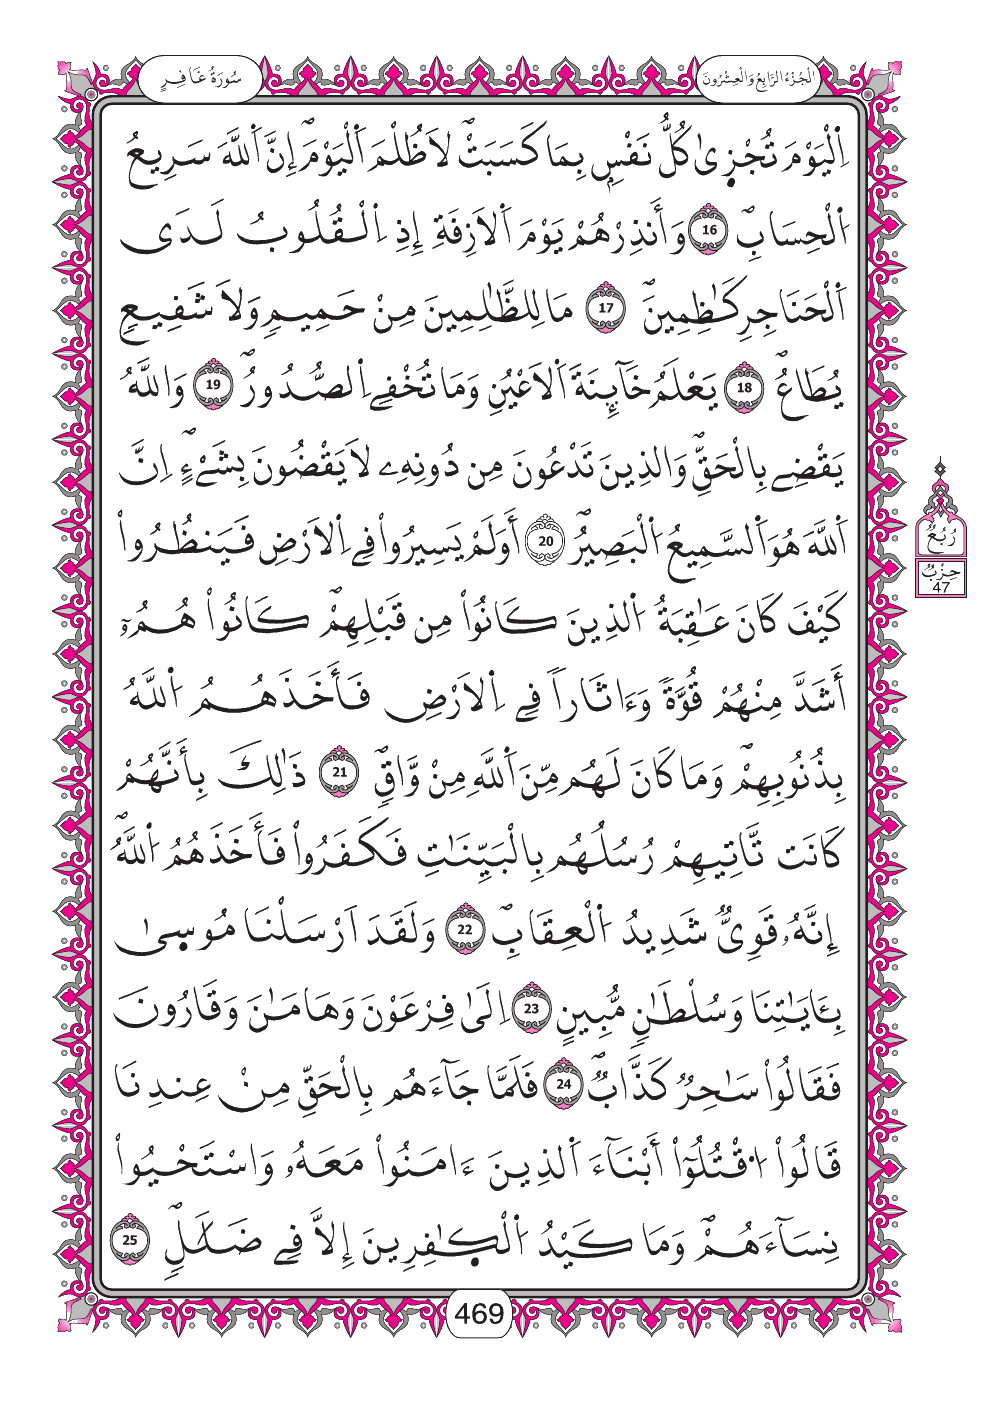 سُورَةُ غَافِرٍ
الْجُزْءُ الرَّابِعُ وَالْعِشْرُونَ
اِ۬لْيَوْمَ تُجْز۪ىٰ كُلُّ نَفْسِۢ بِمَا كَسَبَتْۖ لَا ظُلْمَ اَ۬لْيَوْمَۖ إِنَّ اَ۬للَّهَ سَرِيعُ
اُ۬لْحِسَابِۖ 16 وَأَنذِرْهُمْ يَوْمَ اَ۬لَازِفَةِ إِذِ اِ۬لْقُلُوبُ لَدَى
اَ۬لْحَنَاجِرِ كَٰظِمِينَۖ 17 مَا لِلظَّٰلِمِينَ مِنْ حَمِيمٖ وَلَا شَفِيعٖ
يُطَاعُۖ 18 يَعْلَمُ خَآئِنَةَ اَ۬لَاعْيُنِ وَمَا تُخْفِے اِ۬لصُّدُورُۖ 19 وَاللَّهُ
يَقْضِے بِالْحَقِّۖ وَالذِينَ تَدْعُونَ مِن دُونِهِۦ لَا يَقْضُونَ بِشَےْءٍۖ اِنَّ
اَ۬للَّهَ هُوَ اَ۬لسَّمِيعُ اُ۬لْبَصِيرُۖ 20 أَوَلَمْ يَسِيرُواْ فِے اِ۬لَارْضِ فَيَنظُرُواْ
كَيْفَ كَانَ عَٰقِبَةُ اُ۬لذِينَ كَانُواْ مِن قَبْلِهِمْۖ كَانُواْ هُمُۥٓ
أَشَدَّ مِنْهُمْ قُوَّةٗ وَءَاثَاراٗ فِے اِ۬لَارْضِ فَأَخَذَهُمُ اُ۬للَّهُ
بِذُنُوبِهِمْۖ وَمَا كَانَ لَهُم مِّنَ اَ۬للَّهِ مِنْ وَّاقٖۖ 21 ذَٰلِكَ بِأَنَّهُمْ
كَانَت تَّاتِيهِمْ رُسُلُهُم بِالْبَيِّنَٰتِ فَكَفَرُواْ فَأَخَذَهُمُ اُ۬للَّهُۖ
إِنَّهُۥ قَوِيّٞ شَدِيدُ اُ۬لْعِقَابِۖ 22 وَلَقَدَ اَرْسَلْنَا مُوس۪ىٰ
بِـَٔايَٰتِنَا وَسُلْطَٰنٖ مُّبِينٍ 23 اِلَىٰ فِرْعَوْنَ وَهَامَٰنَ وَقَارُونَ
فَقَالُواْ سَٰحِرٞ كَذَّابٞۖ 24 فَلَمَّا جَآءَهُم بِالْحَقِّ مِنْ عِندِنَا
قَالُواْ اُ۟قْتُلُوٓاْ أَبْنَآءَ اَ۬لذِينَ ءَامَنُواْ مَعَهُۥ وَاسْتَحْيُواْ
نِسَآءَهُمْۖ وَمَا كَيْدُ اُ۬لْكٰ۪فِرِينَ إِلَّا فِے ضَلَٰلٖۖ 25
رُبُعُ
حِزْبُ
47
469